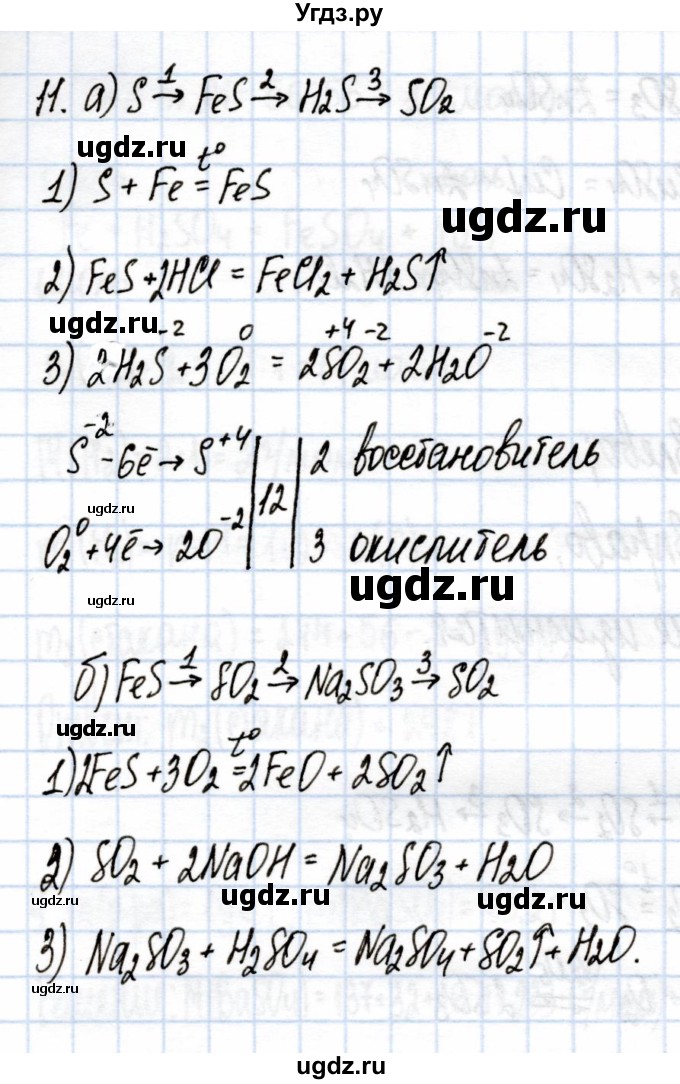 Угдз.ру
11. а) S →¹ FeS →² H₂S →³ SO₂
ugdz.ru
t°
1) S + Fe = FeS
ugdz.ru
2) FeS + 2HCl = FeCl₂ + H₂S↑
ugdz.ru
-2 0 +4 -2 -2
3) 2H₂S + 3O₂ = 2SO₂ + 2H₂O
S⁻² - 6ē → S⁺⁴ | 12 | 2 восстановитель
ugdz.ru
O₂⁰ + 4ē → 2O⁻² | | 3 окислитель
ugdz.ru
ugdz.ru
б) FeS →¹ SO₂ →² Na₂SO₃ →³ SO₂
ugdz.ru
t°
1) 2FeS + 3O₂ = 2FeO + 2SO₂↑
2) SO₂ + 2NaOH = Na₂SO₃ + H₂O
ugdz.ru ugdz.ru ugdz.ru
3) Na₂SO₃ + H₂SO₄ = Na₂SO₄ + SO₂↑ + H₂O.
ugdz.ru
ugdz.ru